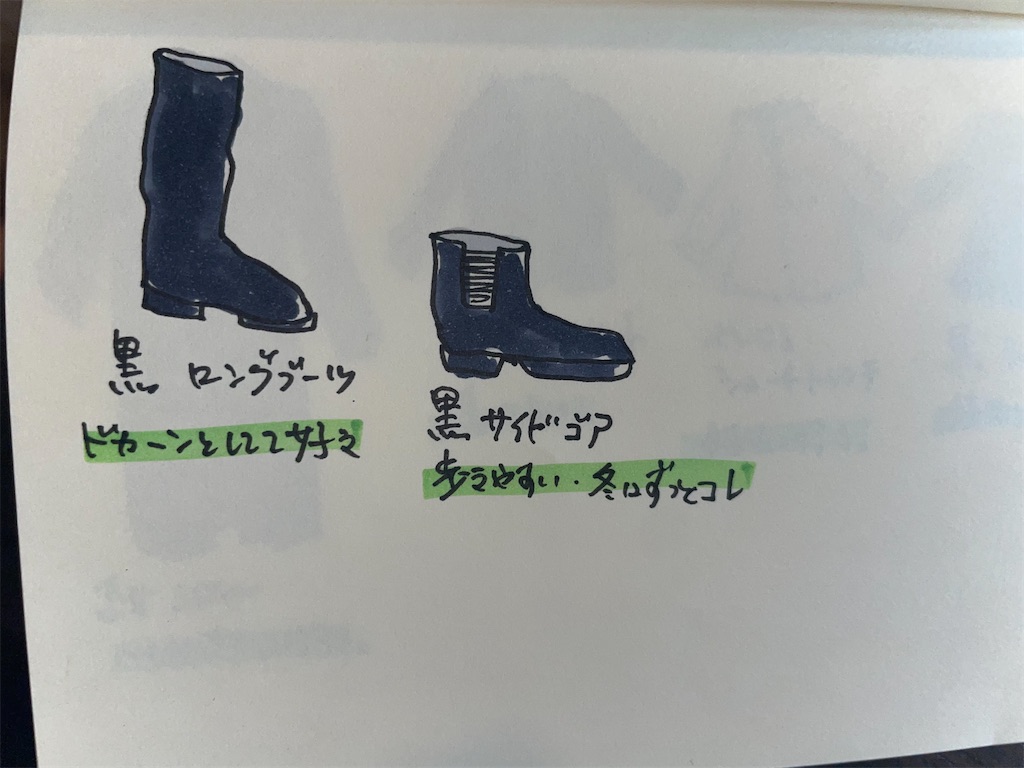 黒 ロングブーツ
ドカーンとしてて好き
黒 サイドゴア
歩きやすい・冬はずっとコレ